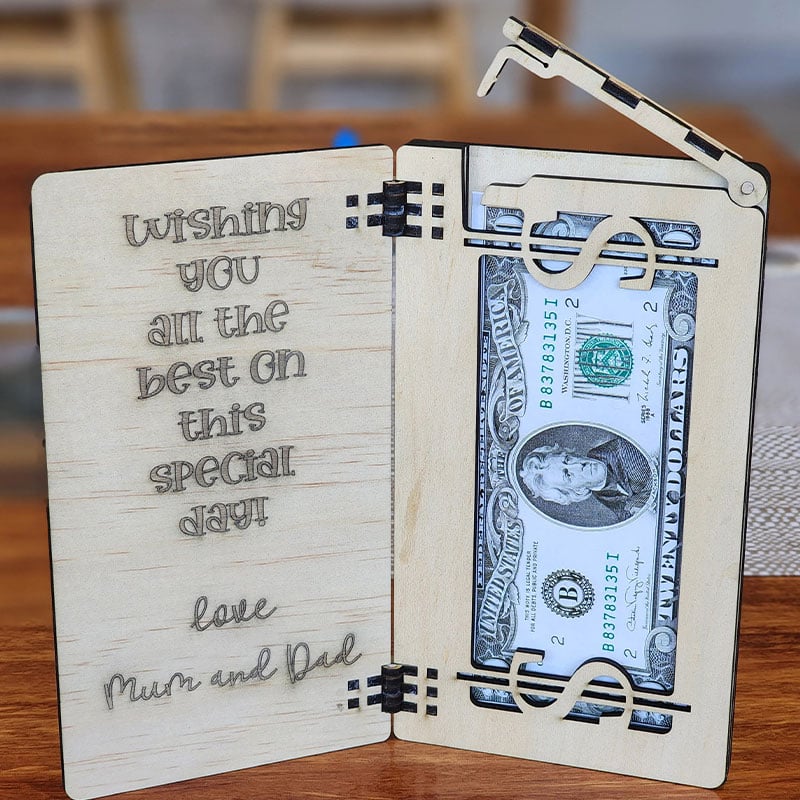 Wishing
you
all the
best on
this
special
day!
love
Mum and Dad
FEDERAL RESERVE NOTE
THE UNITED STATES OF AMERICA
THIS NOTE IS LEGAL TENDER
FOR ALL DEBTS, PUBLIC AND PRIVATE
B
2
2
2
2
B 83783135 I
WASHINGTON, D.C.
B 83783135 I
SERIES
TWENTY DOLLARS